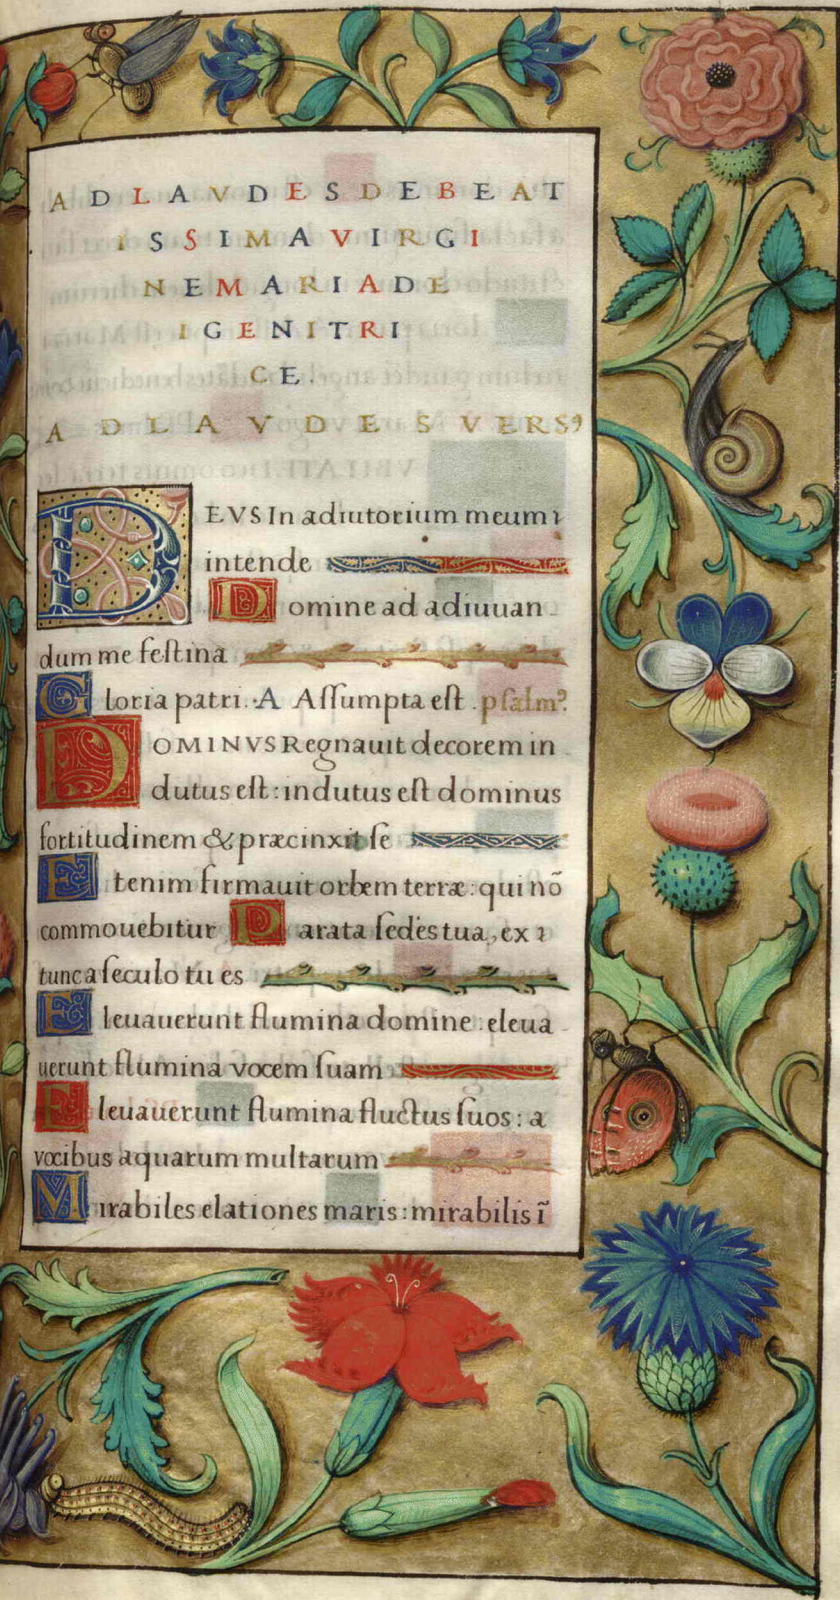 AD LAVDES DE BEAT
ISSIMA VIRGI
NE MARIA DE
IGENITRI
CE.
AD LAVDES VERSꝰ
DEVS In adiutorium meum ı
intende
Domine ad adiuuan
dum me feſtina
Gloria patri. A Aſſumpta eſt. pſalmꝰ.
DOMINVS Regnauit decorem in
dutus eſt: indutus eſt dominus
fortitudinem & præcinxit ſe
Etenim firmauit orbem terræ: qui nō
commouebitur Parata ſedes tua, ex ı
tunc a ſeculo tu es
Eleuauerunt flumina domine: eleua
uerunt flumina vocem ſuam
Eleuauerunt flumina fluctus ſuos: a
vocibus aquarum multarum
Mirabiles elationes maris: mirabilis ī